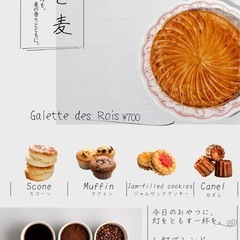 と麦
麦の香りとともに。
Galette des Rois ¥700
Scone
スコーン
Muffin
マフィン
Jam-filled cookies
ジャムサンドクッキー
Canel
カヌレ
今日のおやつに、
灯をともす一杯を。